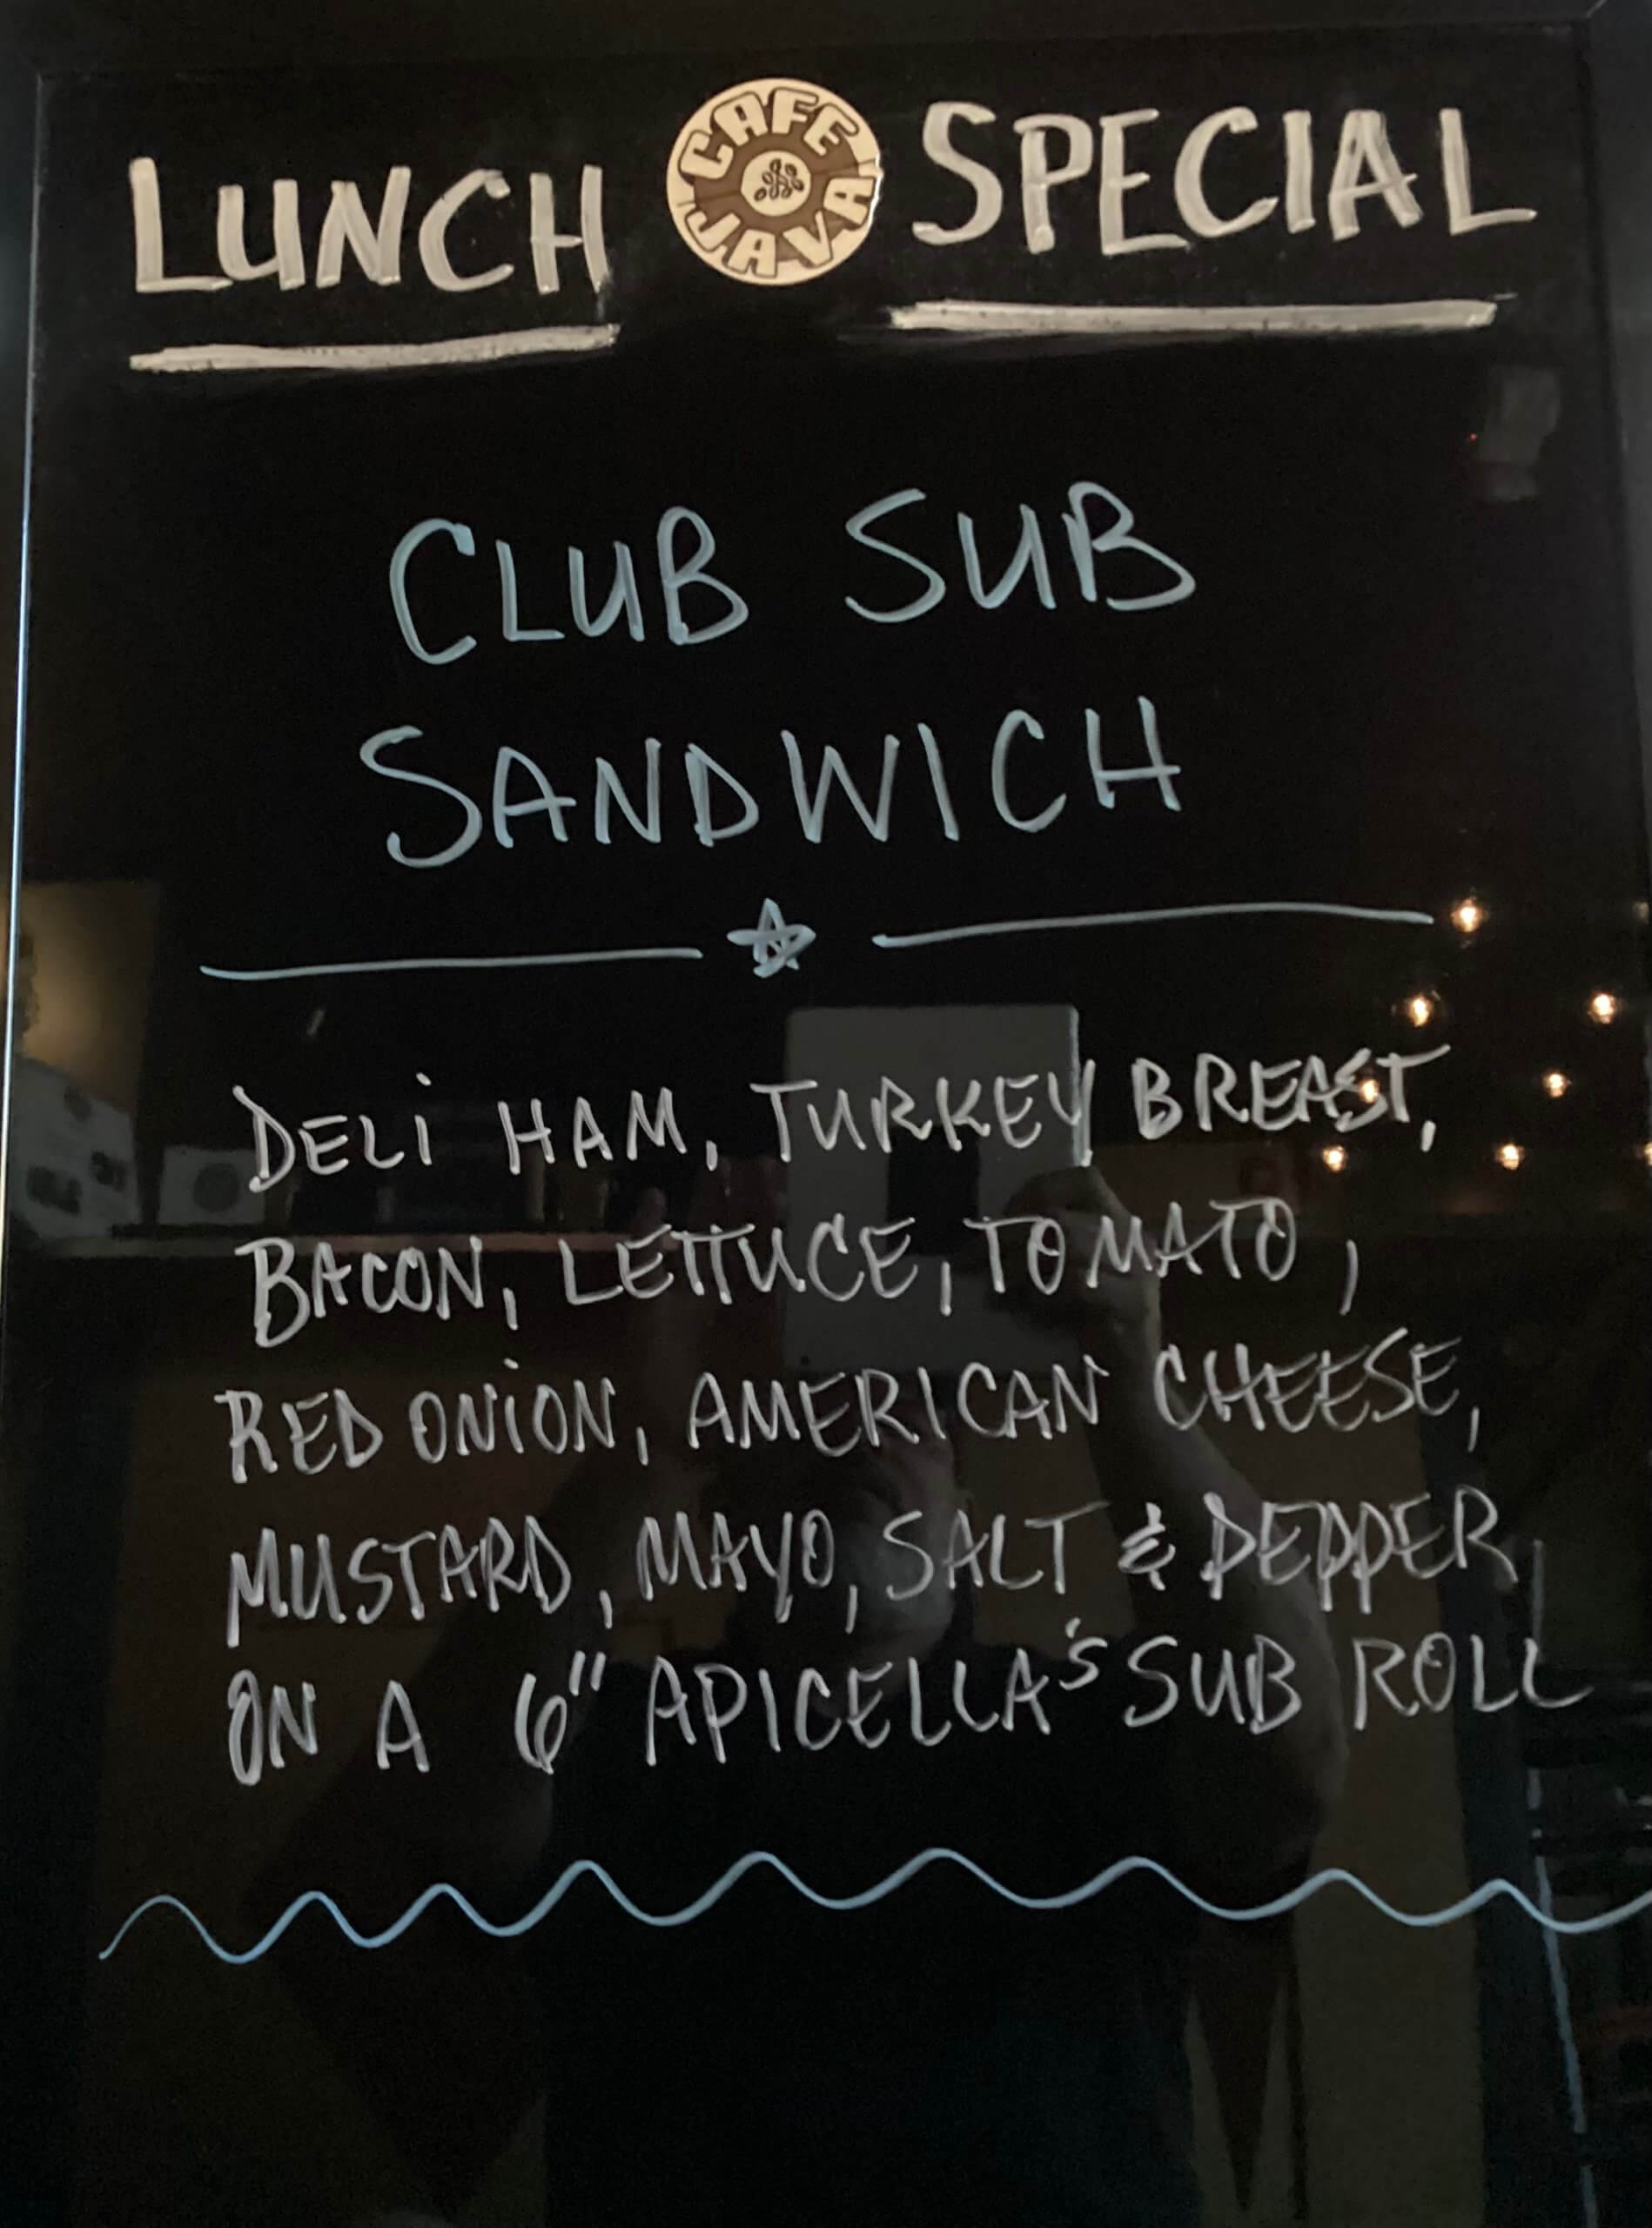 LUNCH CAFE JAVA SPECIAL
CLUB SUB
SANDWICH
DELI HAM, TURKEY BREAST,
BACON, LETTUCE, TOMATO,
RED ONION, AMERICAN CHEESE,
MUSTARD, MAYO, SALT & PEPPER
ON A 6" APICELLA'S SUB ROLL